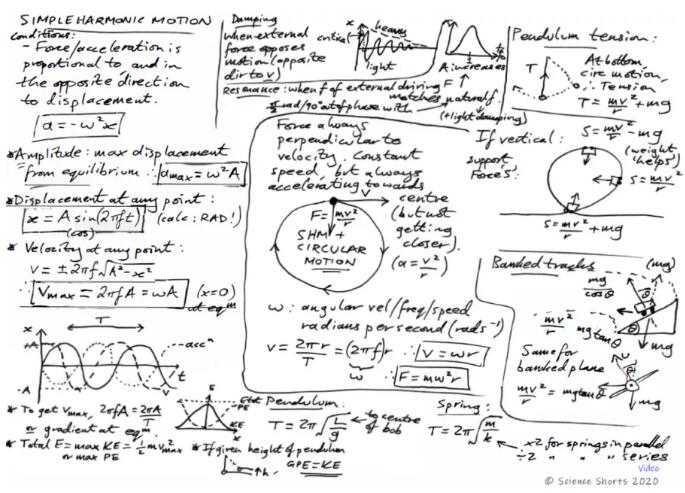 SIMPLE HARMONIC MOTION
Conditions:
- Force/acceleration is
proportional to and in
the opposite direction
to displacement.
a = -ω²x
* Amplitude: max displacement
from equilibrium ∴ a_max = ω²A
* Displacement at any point:
x = A sin(2πft) (calc: RAD!)
(cos)
* Velocity at any point:
v = ±2πf√(A² - x²)
∴ V_max = 2πfA = ωA (x=0)
at eqᵐ
T
+A
-A
x
accⁿ
t
v
* To get Vmax, 2πfA = 2πA/T
or gradient at eqᵐ
* Total E = max KE = ½mv²max
or max PE
E
PE
KE
x
Damping
when external
force opposes
motion (opposite
dir to v)
x
critical
heavy
light
t
A increases
F
Resonance: when f of external driving
matches natural f
π/2 rad/90° out of phase with
(+light damping)
Force always
perpendicular to
velocity. Constant
speed, but always
accelerating towards
centre
(but not
getting
closer).
(a = v²/r)
v
F = mv²/r
SHM +
CIRCULAR
MOTION
ω: angular vel/freq/speed
radians per second (rads⁻¹)
v = 2πr/T = (2πf)r ∴ V = ωr
ω
∴ F = mω²r
Pendulum:
T = 2π√(L/g)
to centre
of bob
* If given height of pendulum
h
GPE = KE
Spring:
T = 2π√(m/k)
x2 for springs in parallel
÷2 " " " series
Pendulum tension:
T
At bottom
circ motion,
∴ Tension
T = mv²/r + mg
If vertical:
S = mv²/r - mg
(weight
'helps')
support
Force 'S':
S = mv²/r
S = mv²/r + mg
Banked tracks
mg/cosθ
(mg)
θ
mv²/r
mg tanθ
mg
Same for
banked plane
mv²/r = mg tanθ
θ
mg
Video
© Science Shorts 2020